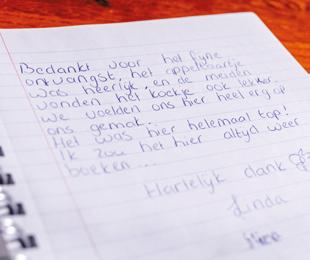 Bedankt voor het fijne
ontvangst, het appeltaartje
was heerlijk, en de meiden
vonden het koekje ook lekker.
we voelden ons hier heel erg op
ons gemak.
Het was hier helemaal top!
Ik zou het hier altyd weer
boeken ...
Hartelyk dank
Linda